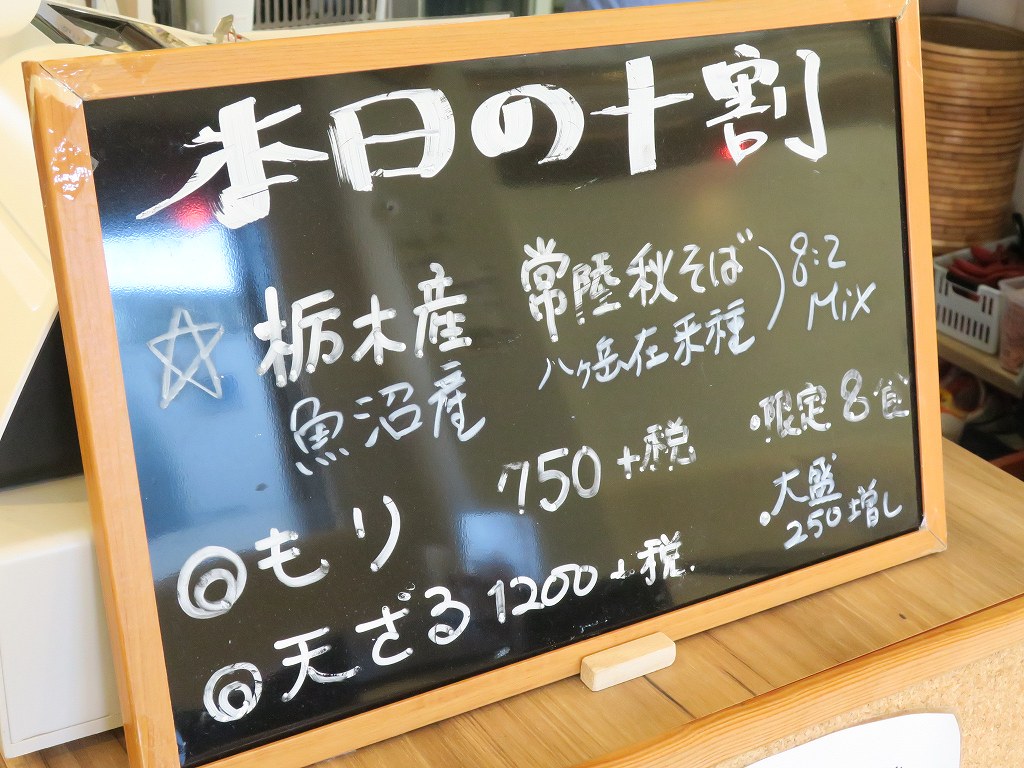 本日の十割
☆ 栃木産 常陸秋そば ) 8:2
魚沼産 八ヶ岳在来種 MiX
◎ もり 750+税 ・限定8食
◎ 天ざる 1200+税. ・大盛
250増し